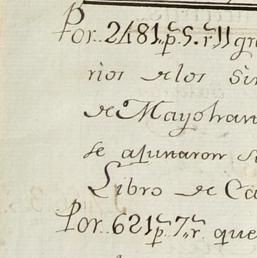 Por.. 2481,,p.s 5.,,r.s 11 gra
rios de los Sir
de Mayoran
se apunaron su
Libro de Ca
Por. 621,,p.s 7,,r.s que